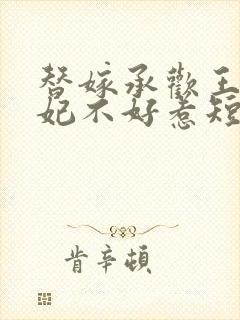 替嫁承欢王
妃不好惹短
肯辛顿